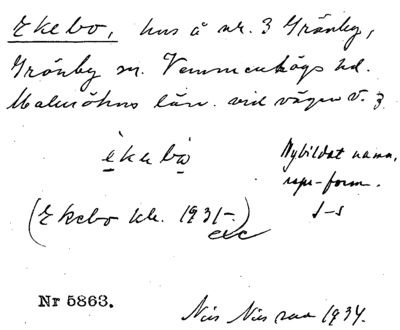 Ekebo, hus å nr. 3 Grönby,
Grönby sn. Vemmenhögs hd.
Malmöhus län. vid vägen v. 3
èkebo
Nybildat namn,
rspr-form.
(Ekebo kk. 1931-.)
exc
Nr 5863.
Nils Nilsson 1934.